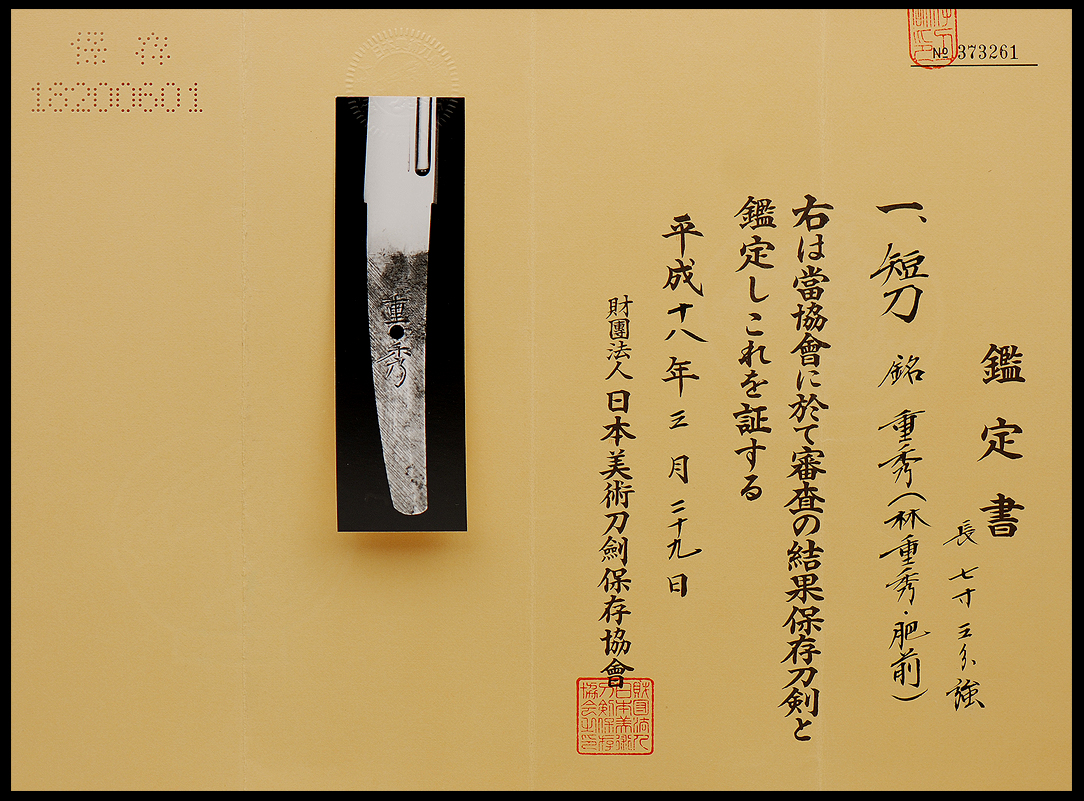 № 373261
鑑定書
長 七寸 三分強
一、短刀 銘 重秀(林重秀・肥前)
右は當協會に於て審査の結果保存刀剣と
鑑定しこれを証する
平成十八年 三月 二十九日
財團法人 日本美術刀剣保存協會
重秀
保存
18200601